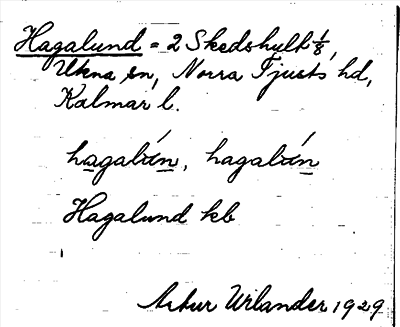 Hagalund = 2 Skedshult 1/8,
Ukna sn, Norra Tjusts hd,
Kalmar l.
hagalún, hagalún
Hagalund kb
Artur Wilander 1929